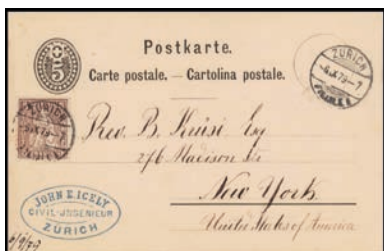 Postkarte.
5
Carte postale. — Cartolina postale.
ZÜRICH
-6.IX.79.-7
ZÜRICH
-6.IX.79.-7
Rev. B. Krüsi Esq
276 Madison Str
New York
United States of America
JOHN E. ICELY
CIVIL-INGENIEUR
ZÜRICH
6/9/79